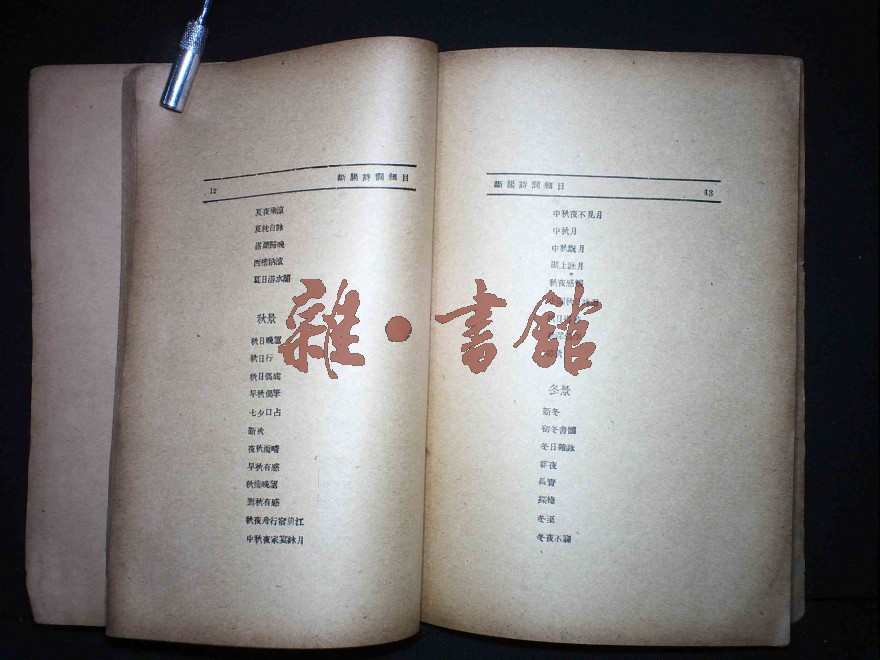 斷腸詩詞細目
12
夏夜乘涼
夏枕自詠
湖上歸晚
西樓納涼
夏日游水閣
秋景
秋日晚望
秋日行
秋日偶成
早秋偶筆
七夕口占
新秋
夜秋雨晴
早秋有感
秋樓晚望
對秋有感
秋夜舟行宿前江
中秋夜家宴詠月
斷腸詩詞細目
43
中秋夜不見月
中秋月
中秋翫月
湖上詠月
秋夜感懷
冬景
新冬
初冬書懷
冬日雜詠
霜夜
長宵
探梅
冬至
冬夜不寐
雜·書館